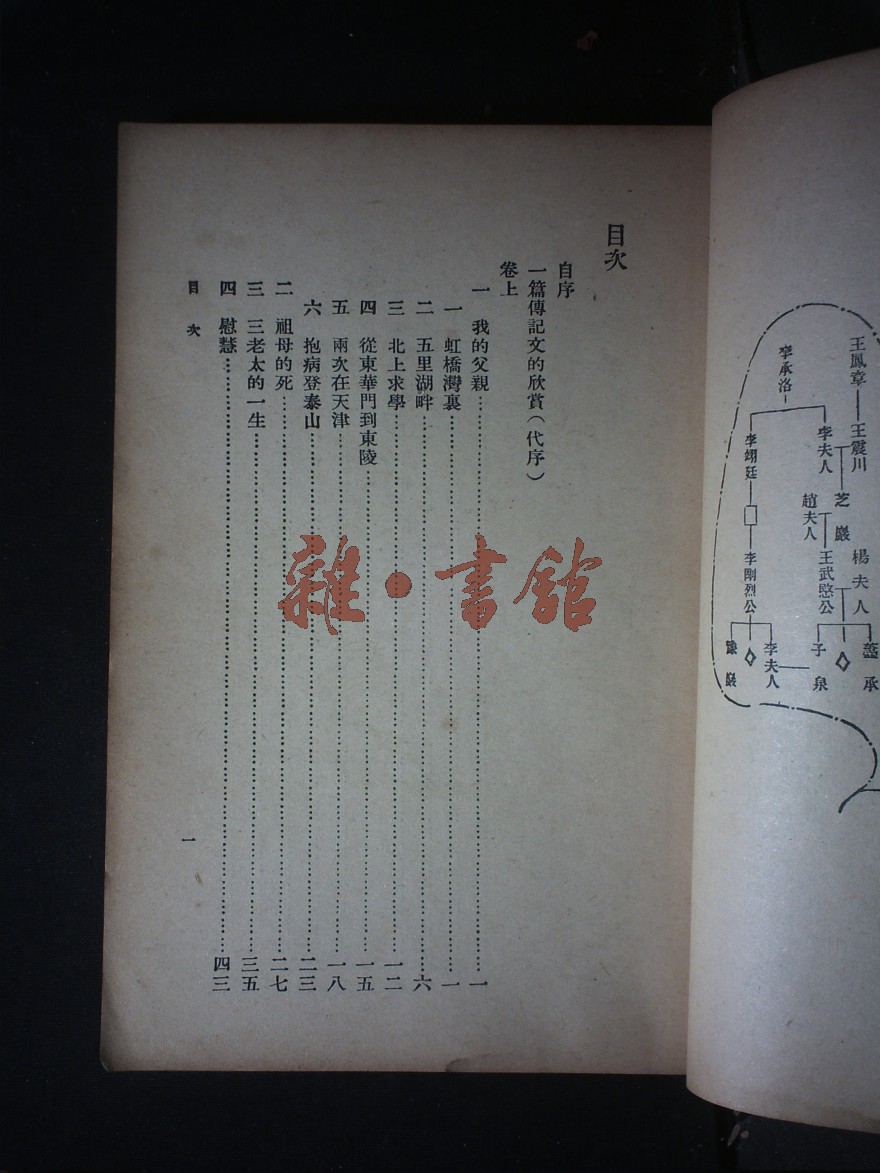 目次
自序
一篇傳記文的欣賞（代序）
卷上
一 我的父親……一
一 虹橋灣裏……一
二 五里湖畔……六
三 北上求學……一二
四 從東華門到東陵……一五
五 兩次在天津……一八
六 抱病登泰山……二三
二 祖母的死……二七
三 三老太的一生……三五
四 慰慧……四三
目次
一
雜·書館
王鳳章
王震川
李承洛
李夫人
芝巖
李翊廷
趙夫人
王武愍公
楊夫人
李剛烈公
豫巖
李夫人
子泉
蓋承